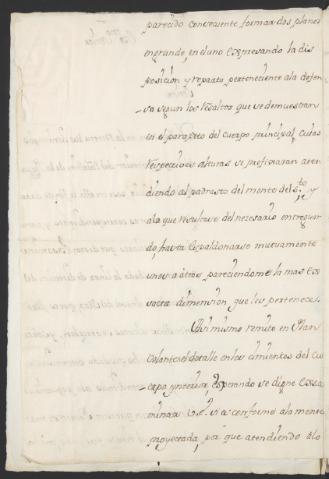 parecido conveniente formar dos planos
en grande, en el uno expresando la dis
posicion y reparto perteneciente ala defen
sa segun los resaltos que se demuestran
en el parapeto del cuerpo principal, cuias
respectivas alturas se prefixaran aten
diendo al padrastro del monte del y
ala que resultare del necesario en
do, hasta Espaldonarse mutuamente
unos a otros pareciendome la mas Ex
sacta dimension que les pertenece.
Asimismo remito en Plan
el detalle en los cimientos del Cu
interior, Esperando se digne Exsa
minar V.E. si es conforme ala mente
proyectada, por que atendiendo alo